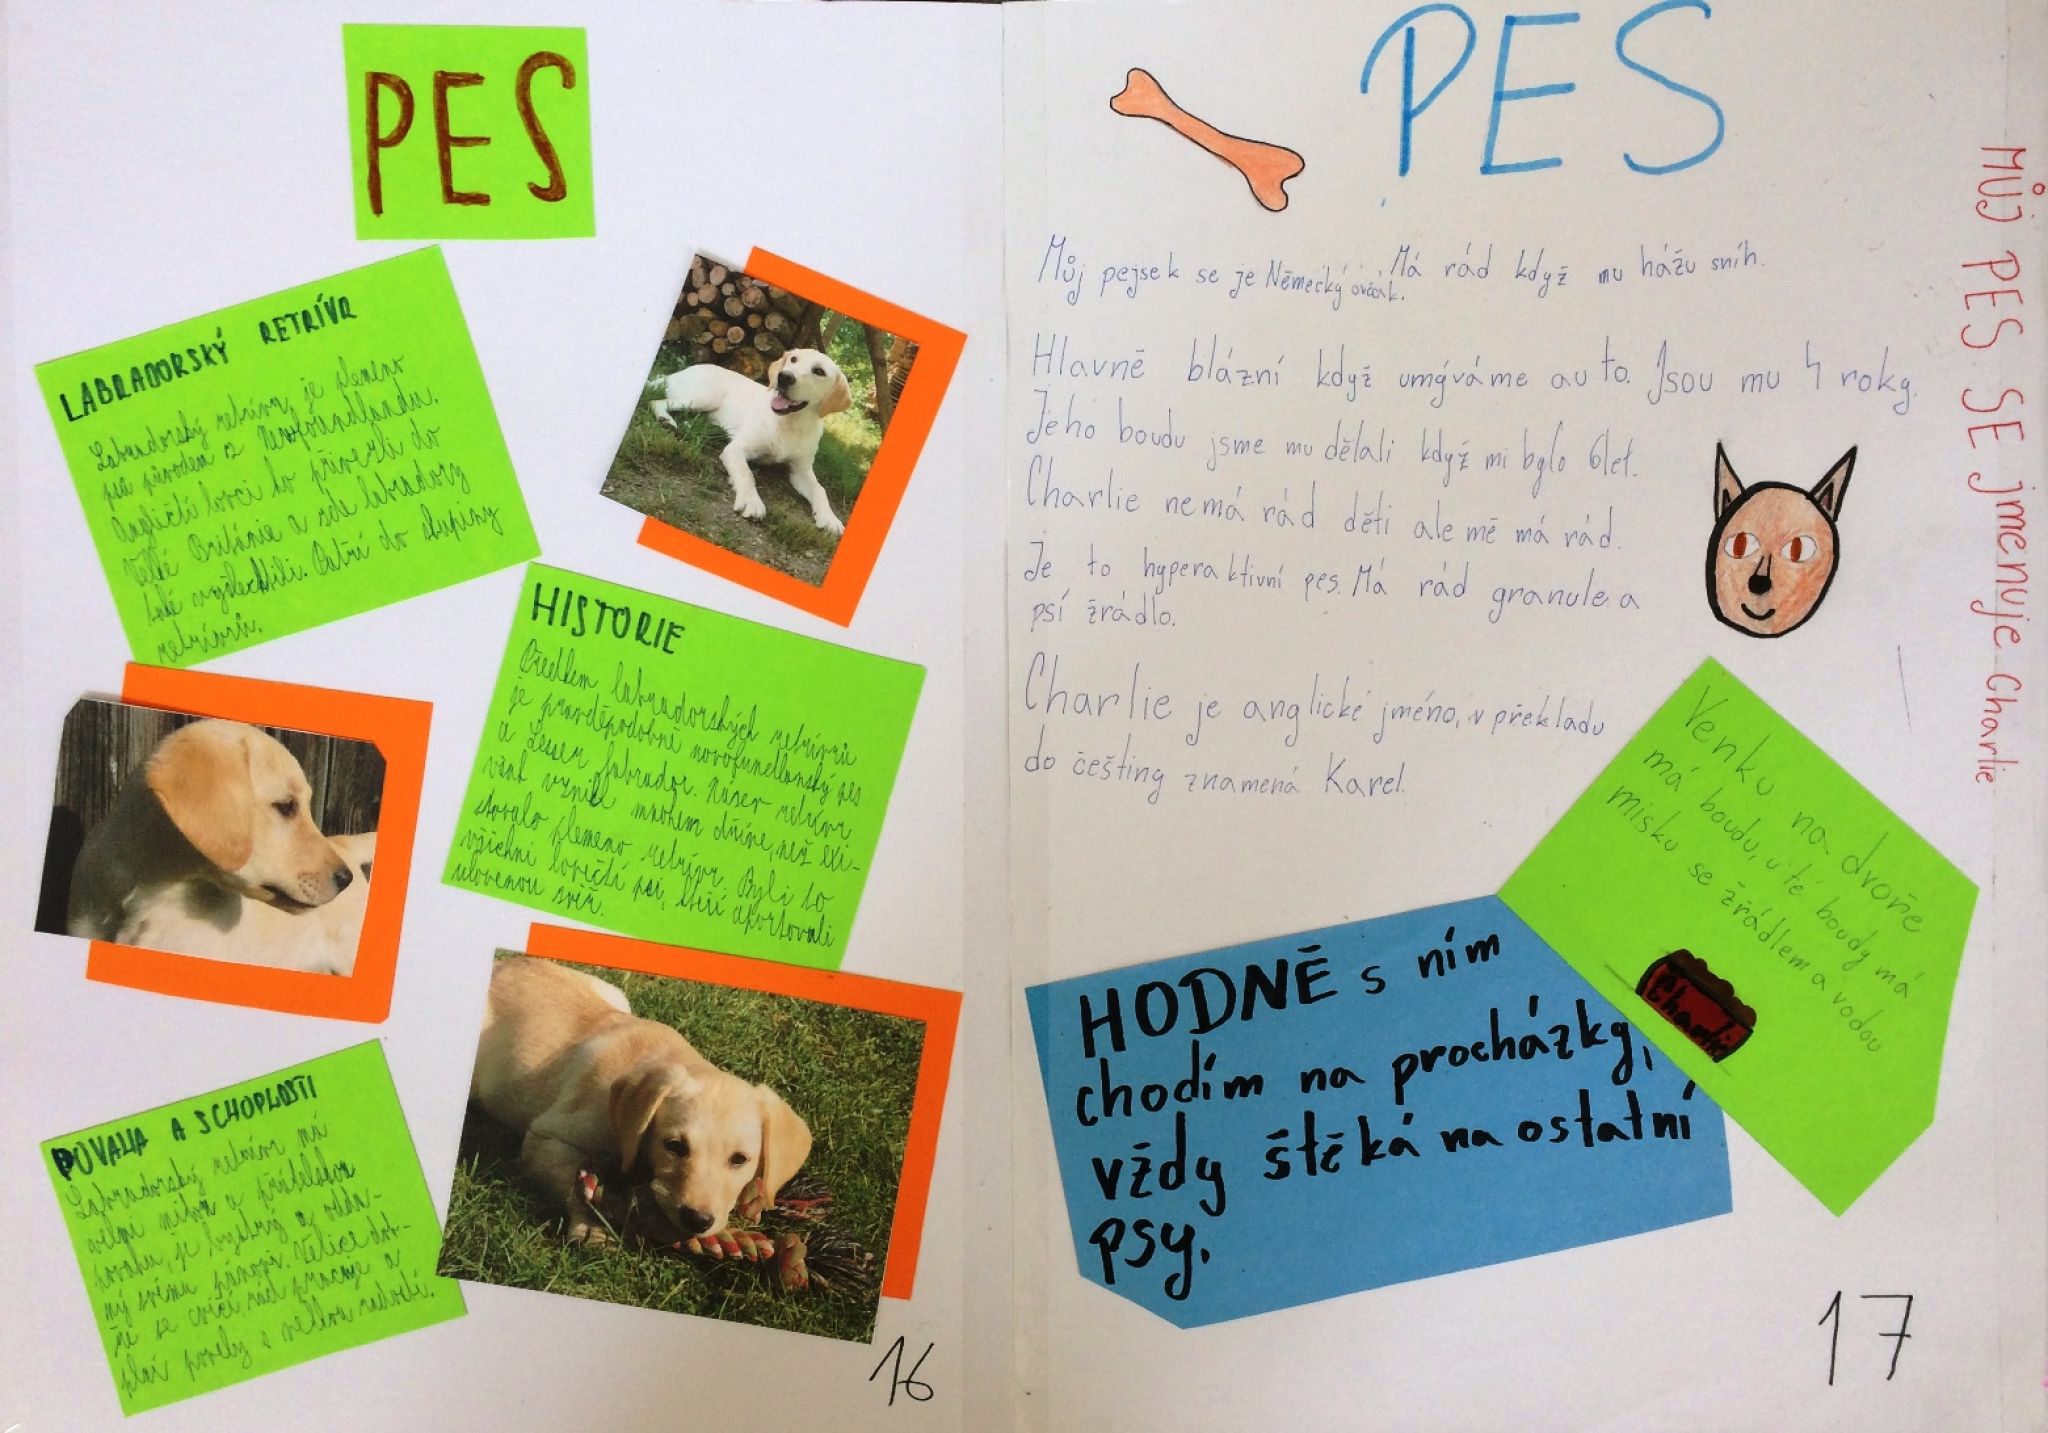 PES
LABRADORSKÝ RETRÍVR
Labradorský retrívr je plemeno
psa původem z Newfoundlandu.
Angličtí lovci ho přivezli do
Velké Británie a zde labradory
také vyšlechtili. Patří do skupiny
retrívrů.
HISTORIE
Předkem labradorských retrívrů
je pravděpodobně novofundlanský pes
a Lesser Labrador. Název retrívr
však vznikl mnohem dříve, než exi-
stovalo plemeno retrívr. Byli to
všichni lovečtí psi, kteří aportovali
ulovenou zvěř.
POVAHA A SCHOPLOSTI
Labradorský retrívr má
velmi milou a přátelskou
povahu, je bystrý a odda-
ný svému pánovi. Velice dob-
ře se cvičí, rád pracuje a
plní povely s velkou radostí.
16
PES
Můj pejsek se je Německý ovčák. Má rád když mu hážu sníh.
Hlavně blázní když umýváme auto. Jsou mu 4 roky.
Jeho boudu jsme mu dělali když mi bylo 6let.
Charlie nemá rád děti ale mě má rád.
Je to hyperaktivní pes. Má rád granule a
psí žrádlo.
Charlie je anglické jméno, v překladu
do češtiny znamená Karel.
MŮJ PES SE jmenuje Charlie
Venku na dvoře
má boudu, u té boudy má
misku se žrádlem a vodou
Charlie
HODNĚ s ním
chodím na procházky,
vždy štěká na ostatní
psy.
17